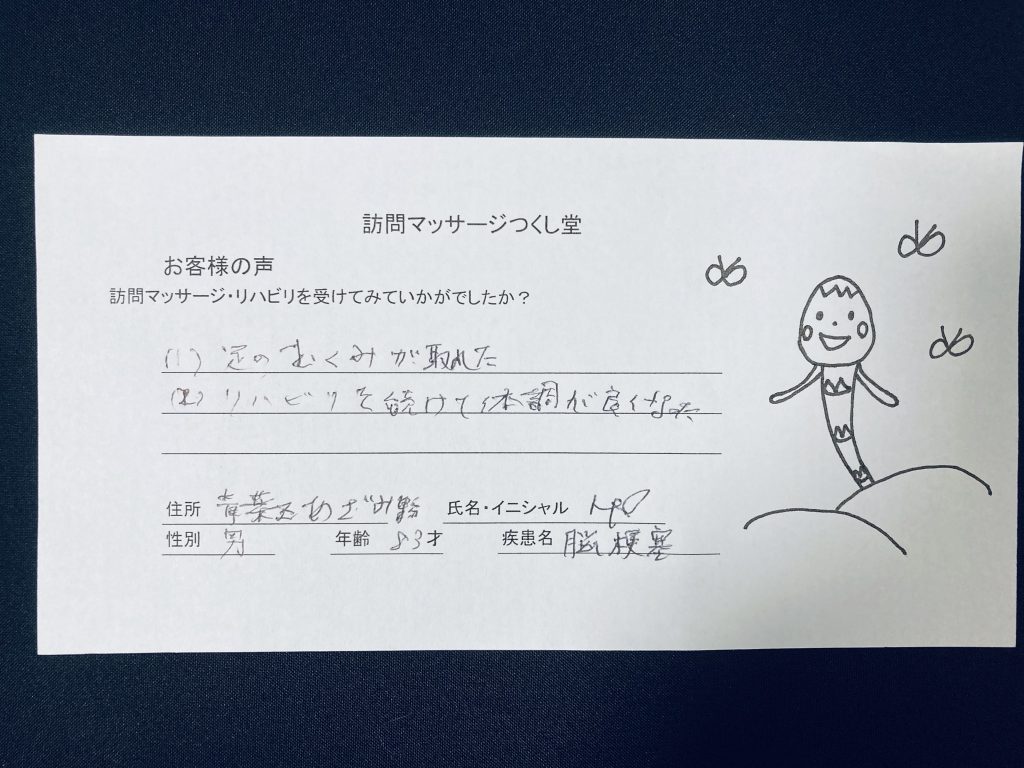 訪問マッサージつくし堂
お客様の声
訪問マッサージ・リハビリを受けてみていかがでしたか？
(1) 足のむくみが取れた
(2) リハビリを続けて体調が良くなった
住所 青葉区あざみ野 氏名・イニシャル
性別 男 年齢 83才 疾患名 脳梗塞